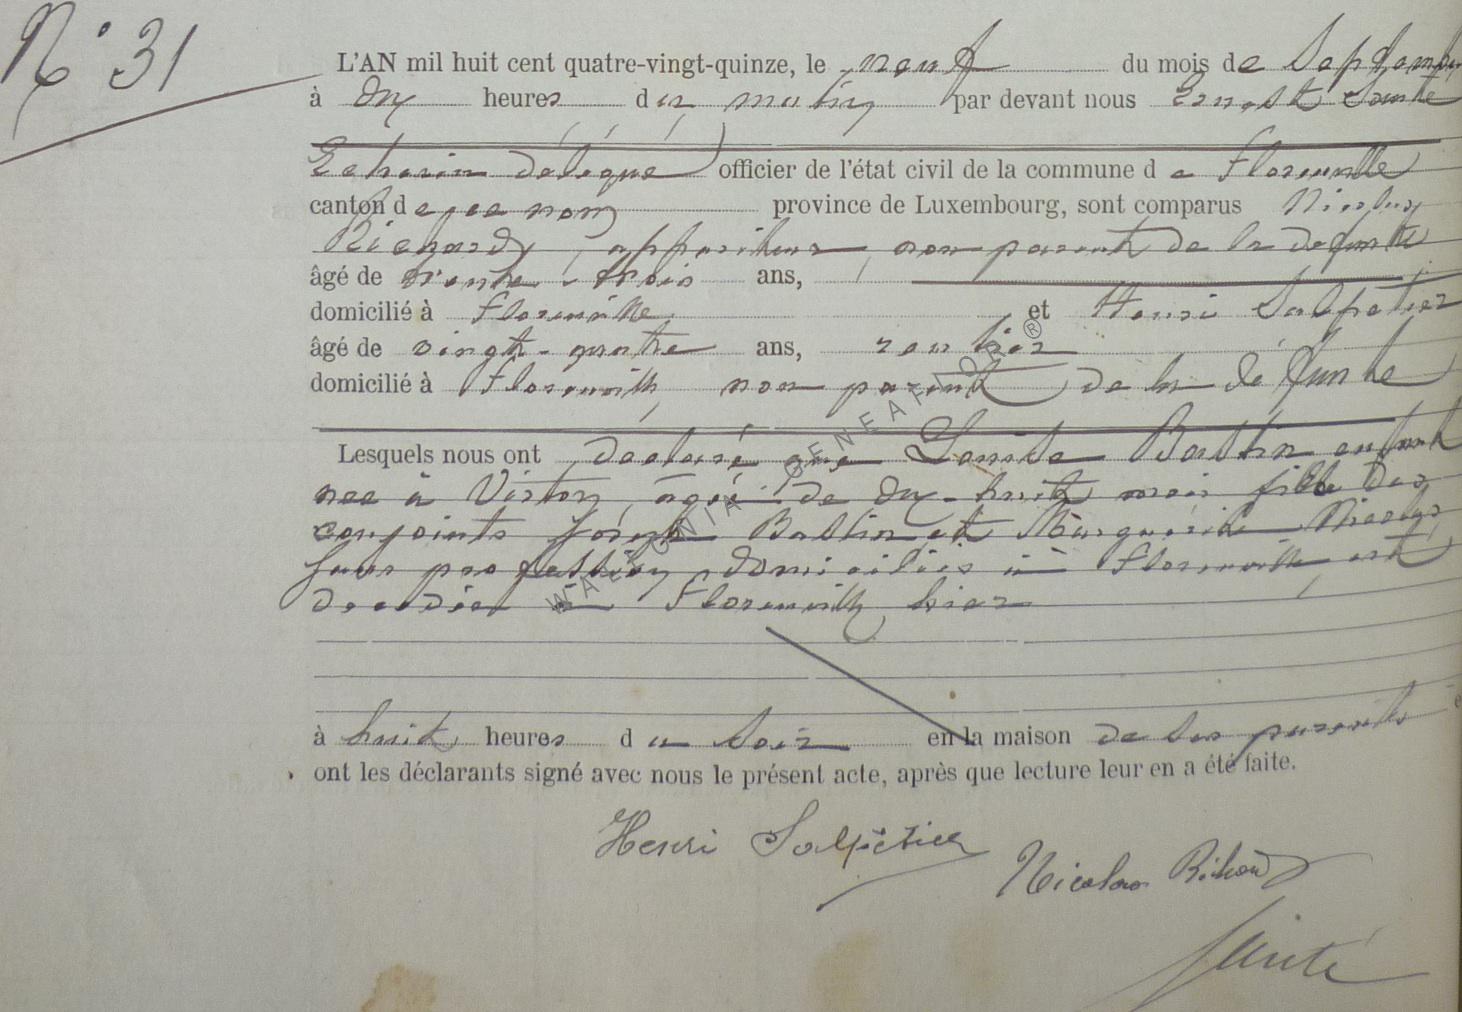 N° 31
L'AN mil huit cent quatre-vingt-quinze, le neuf du mois de Septembre
à dix heures du matin par devant nous Ernest Sainté
Echevin délégué officier de l'état civil de la commune de Florenville
canton de ce nom province de Luxembourg, sont comparus Nicolas
Richard, appariteur, non parent de la defunte
âgé de trente-trois ans,
domicilié à Florenville et Henri Salpetier
âgé de vingt-quatre ans,
domicilié à Florenville non parent de la défunte
Lesquels nous ont déclaré que Louise Bastin enfant
née à Virton, agée de dix-huit mois fille des
conjoints Joseph Bastin et Marguerite Nicolas
sans profession domiciliés à Florenville est
decedée à Florenville hier
à huit heures du soir en la maison de ses parents
ont les déclarants signé avec nous le présent acte, après que lecture leur en a été faite.
Henri Salpétier
Nicolas Richard
Sainté
WALLONIA GENEAFIDOR ®